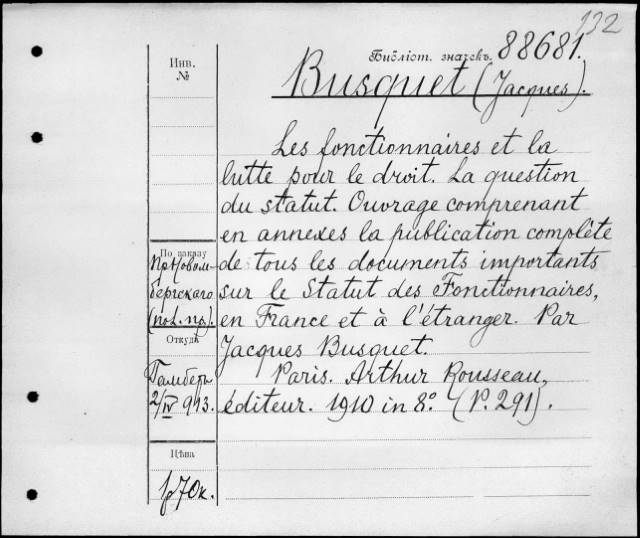 132
Библіот. значекъ. 88681.
Инв.
№
Busquet (Jacques).
Les fonctionnaires et la
lutte pour le droit. La question
du statut. Ouvrage comprenant
en annexes la publication complète
de tous les documents importants
sur le Statut des Fonctionnaires,
en France et à l'étranger. Par
Jacques Busquet.
Paris. Arthur Rousseau,
éditeur. 1910 in 8º. (P. 291).
По заказу
Пр. Новом-
бергскаго
Откуда
Гамберъ
2/IV 913.
Цѣна
1р70к.